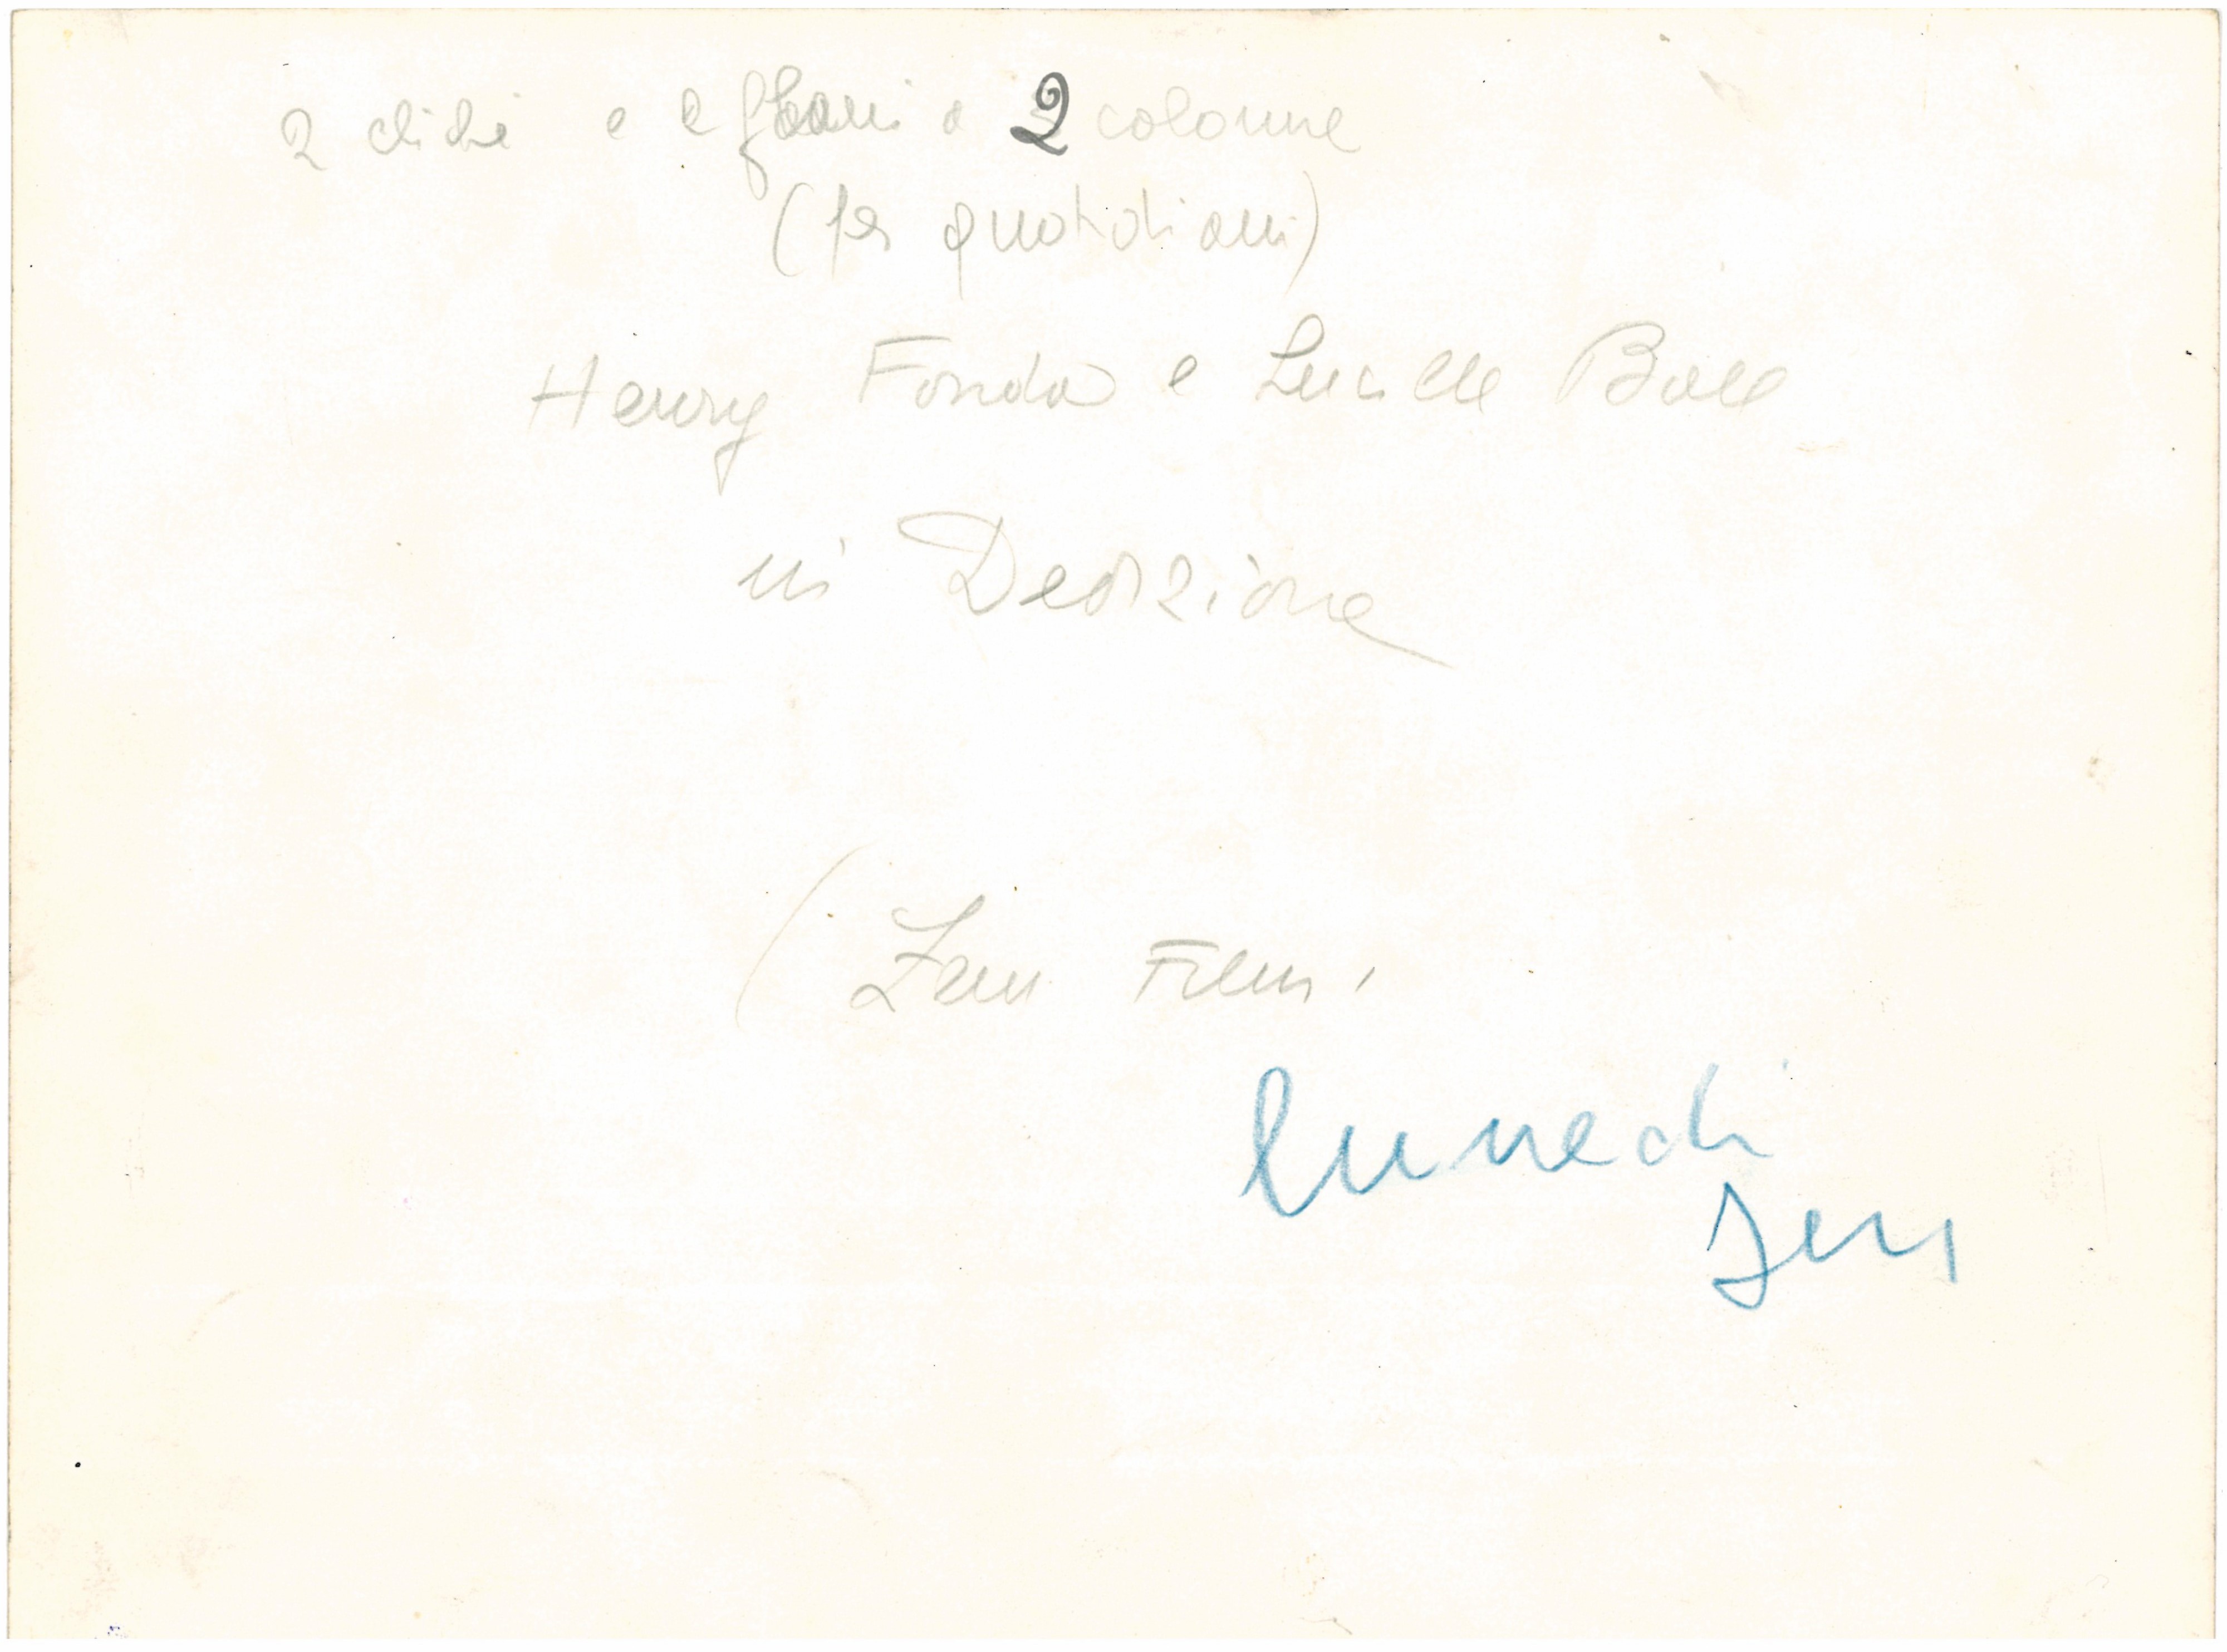 2 clichè e 2 flani a 2 colonne
(per quotidiani)
Henry Fonda e Lucille Ball
in Dedizione
(Zeus Film,
lunedi